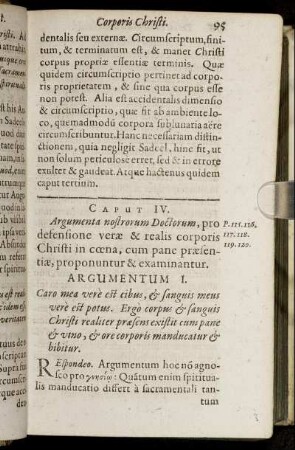 Corporis Christi. 95
dentalis seu externæ. Circumscriptum, fini-
tum, & terminatum est, & manet Christi
corpus propriæ essentiæ terminis. Quæ
quidem circumscriptio pertinet ad corpo-
ris proprietatem, & sine qua corpus esse
non potest. Alia est accidentalis dimensio
& circumscriptio, quæ fit ab ambiente lo-
co, quemadmodū corpora sublunaria aëre
circumscribuntur. Hanc necessariam distin-
ctionem, quia negligit Sadeel, hinc fit, ut
non solum periculose erret, sed & in errore
exultet & gaudeat. Atque hactenus quidem
caput tertium.
CAPUT IV.
Argumenta nostrorum Doctorum, pro
defensione veræ & realis corporis
Christi in cœna, cum pane præsen-
tiæ, proponuntur & examinantur.
P. 115. 116.
117. 118.
119. 120.
ARGUMENTUM I.
Caro mea verè est cibus, & sanguis meus
verè est potus. Ergo corpus & sanguis
Christi realiter præsens existit cum pane
& vino, & ore corporis manducatur &
bibitur.
REspondeo. Argumentum hoc nō agno-
sco pro γνησίῳ: Quātum enim spiritua-
lis manducatio differt à sacramentali tan-
tum